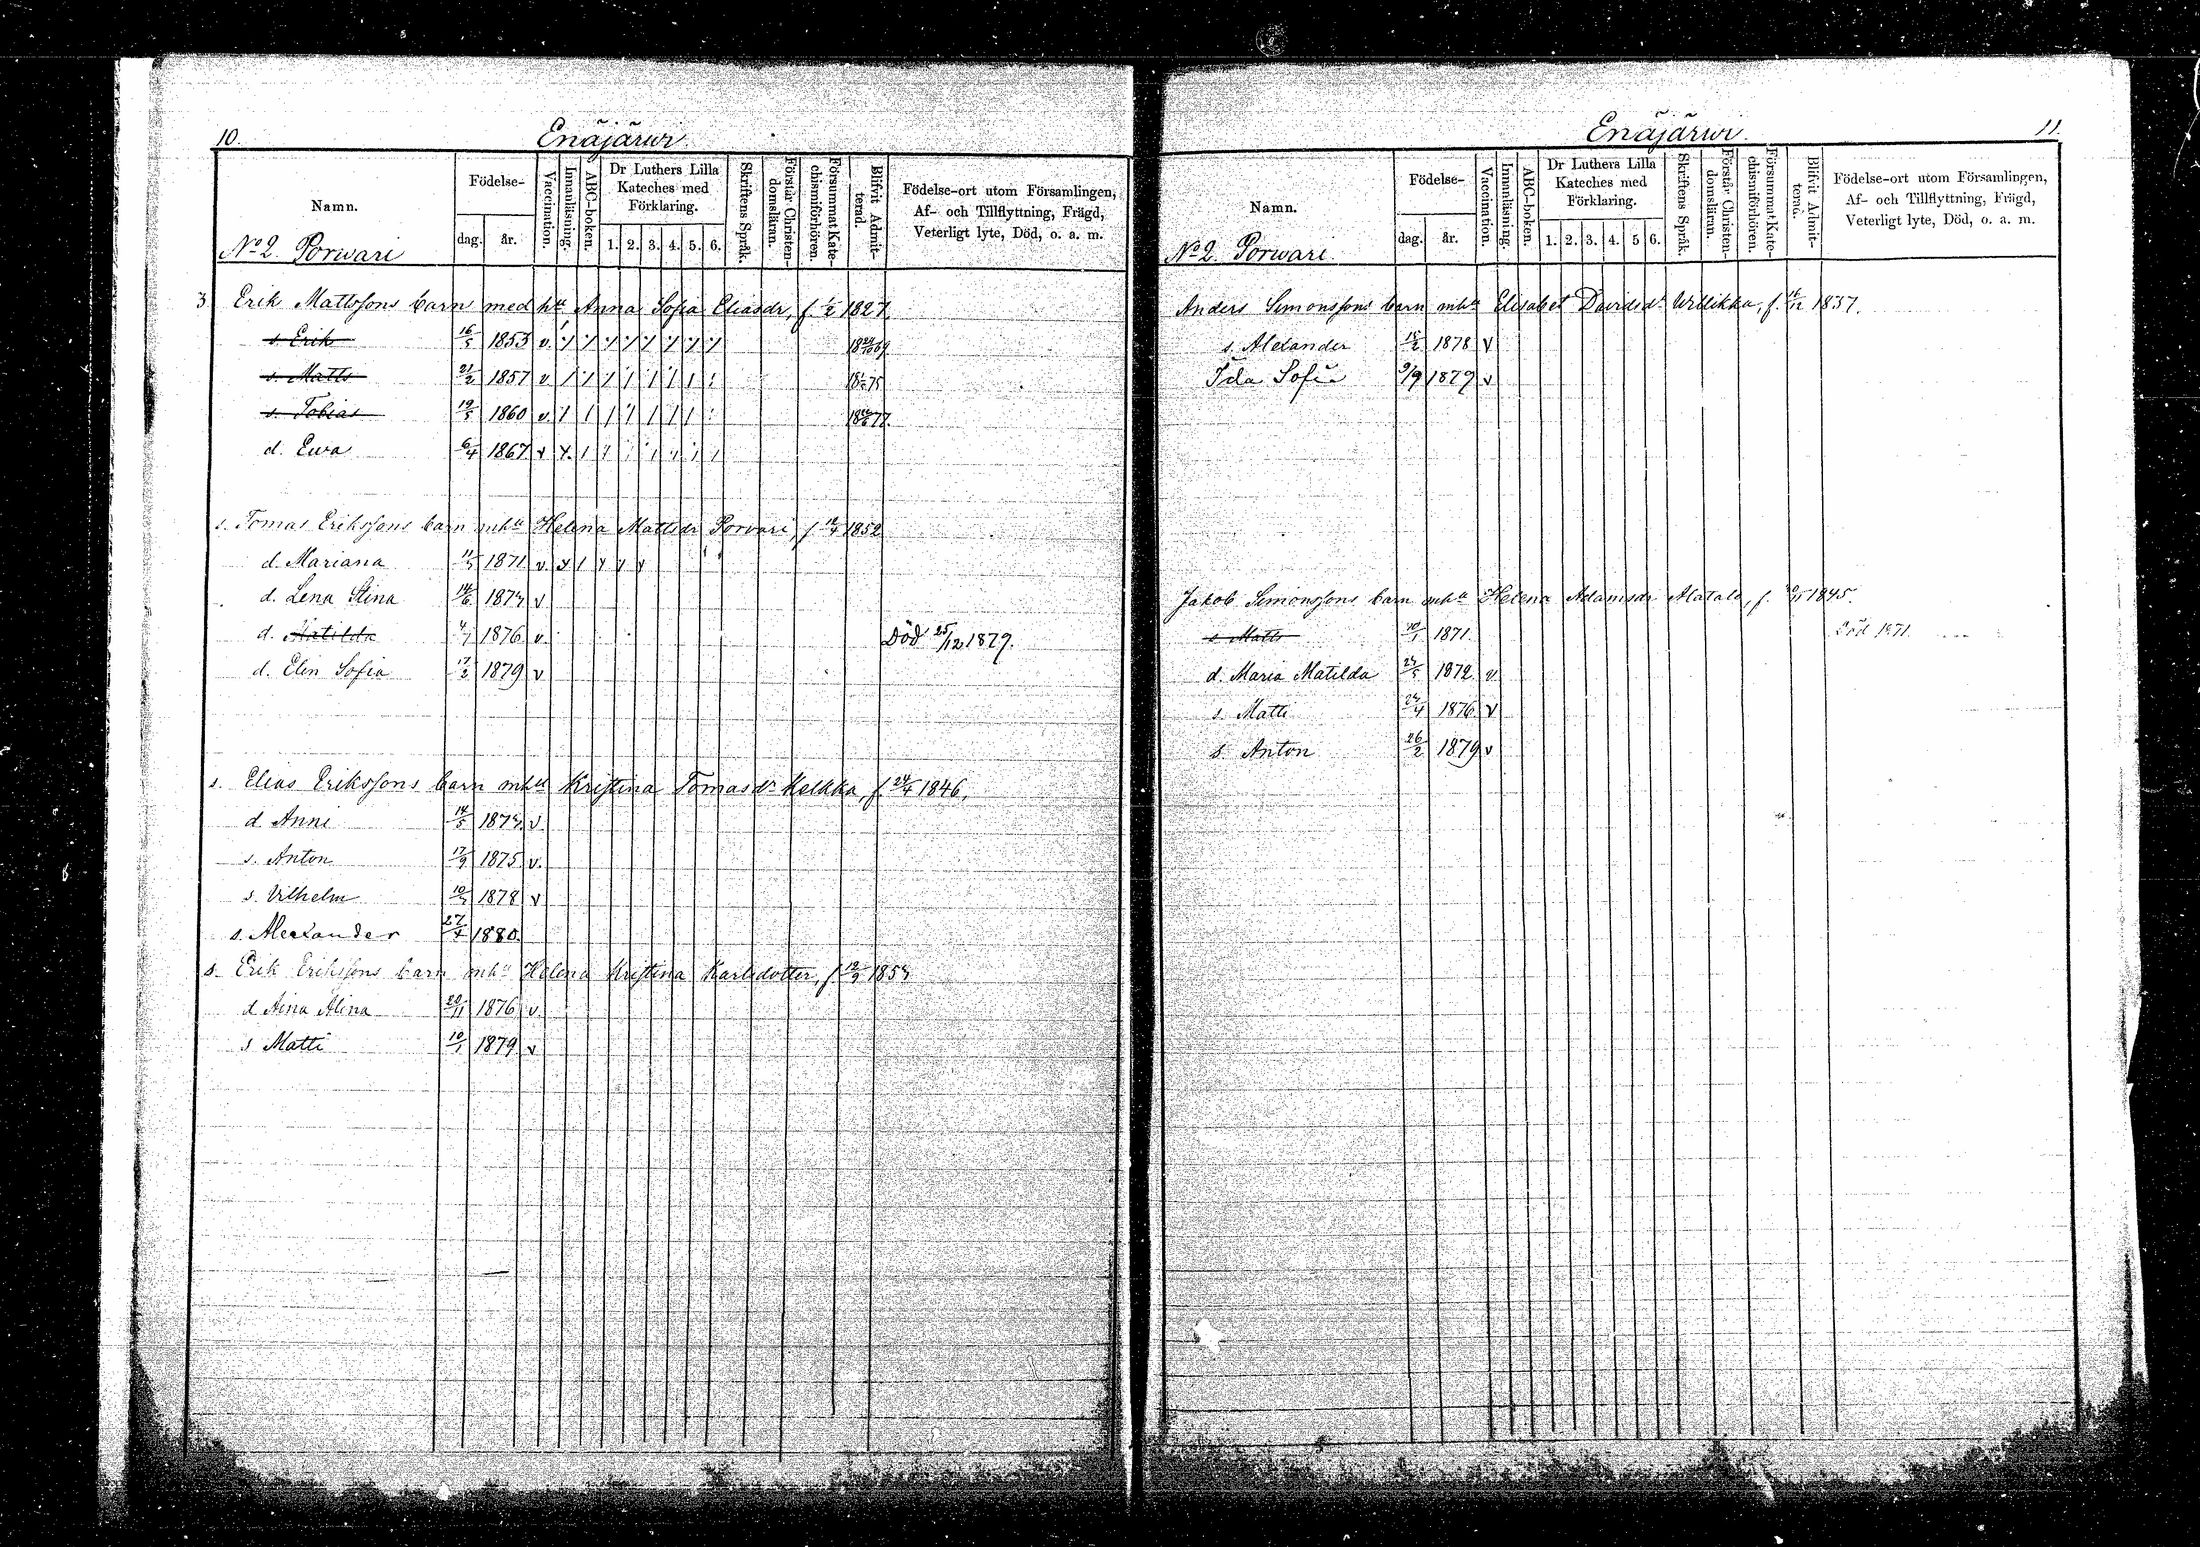 10.
Enäjärwi
Namn.
Födelse-
dag.
år.
Vaccination.
Innanläsning.
ABC-boken.
Dr Luthers Lilla
Kateches med
Förklaring.
1. 2. 3. 4. 5. 6.
Skriftens Språk.
Förstår Christen-
domsläran.
Försummat Kate-
chismiförhören.
Blifvit Admit-
terad.
Födelse-ort utom Församlingen,
Af- och Tillflyttning, Frägd,
Veterligt lyte, Död, o. a. m.
No 2 Porwari
3 Erik Mattssons barn med hu Anna Sofia Eliasdr, f. 1/2 1827.
s. Erik 16/5 1853 v.
s. Matts 21/2 1857 v 75
s. Tobias 19/5 1860 v. 77.
d. Ewa 6/4 1867 v
s. Tomas Erikssons barn mhu Helena Mattsdr Porvari, f 1852
d. Mariana 11/5 1871 v.
d. Lena Stina 14/6 1873 v
d. Matilda 4/1 1876 v. Död 25/12 1879.
d. Elin Sofia 17/2 1879 v
s. Elias Erikssons barn mhu Kristina Tomasdr Melkka, f. 24/4 1846,
d Anni 14/5 1873. v
s. Anton 17/9 1875 v.
s. Vilhelm 1878 v
s. Alexander 27/4 1880.
s. Erik Erikssons barn mhu Helena Kristina Karlsdotter, f 1853
d Aina Alina 20/11 1876 v
s Matti 10/1 1879 v
11.
Enäjärwi
Namn.
Födelse-
dag.
år.
Vaccination.
Innanläsning.
ABC-boken.
Dr Luthers Lilla
Kateches med
Förklaring.
1. 2. 3. 4. 5 6.
Skriftens Språk.
Förstår Christen-
domsläran.
Försummat Kate-
chismiförhören.
Blifvit Admit-
terad.
Födelse-ort utom Församlingen,
Af- och Tillflyttning, Frägd,
Veterligt lyte, Död, o. a. m.
No 2 Porwari
Anders Simonssons barn mhu Elisabet Davidsdr Willikka, f. 16/12 1857.
s. Alexander 1878 v
Ida Sofia 9/9 1879 v
Jakob Simonssons barn mhu Helena Adamsdr Alatalo, f. 1845.
s Matts 10/1 1871. Död 1871
d. Maria Matilda 1872. v.
s. Matti 1876 v
s. Anton 26/2 1879 v